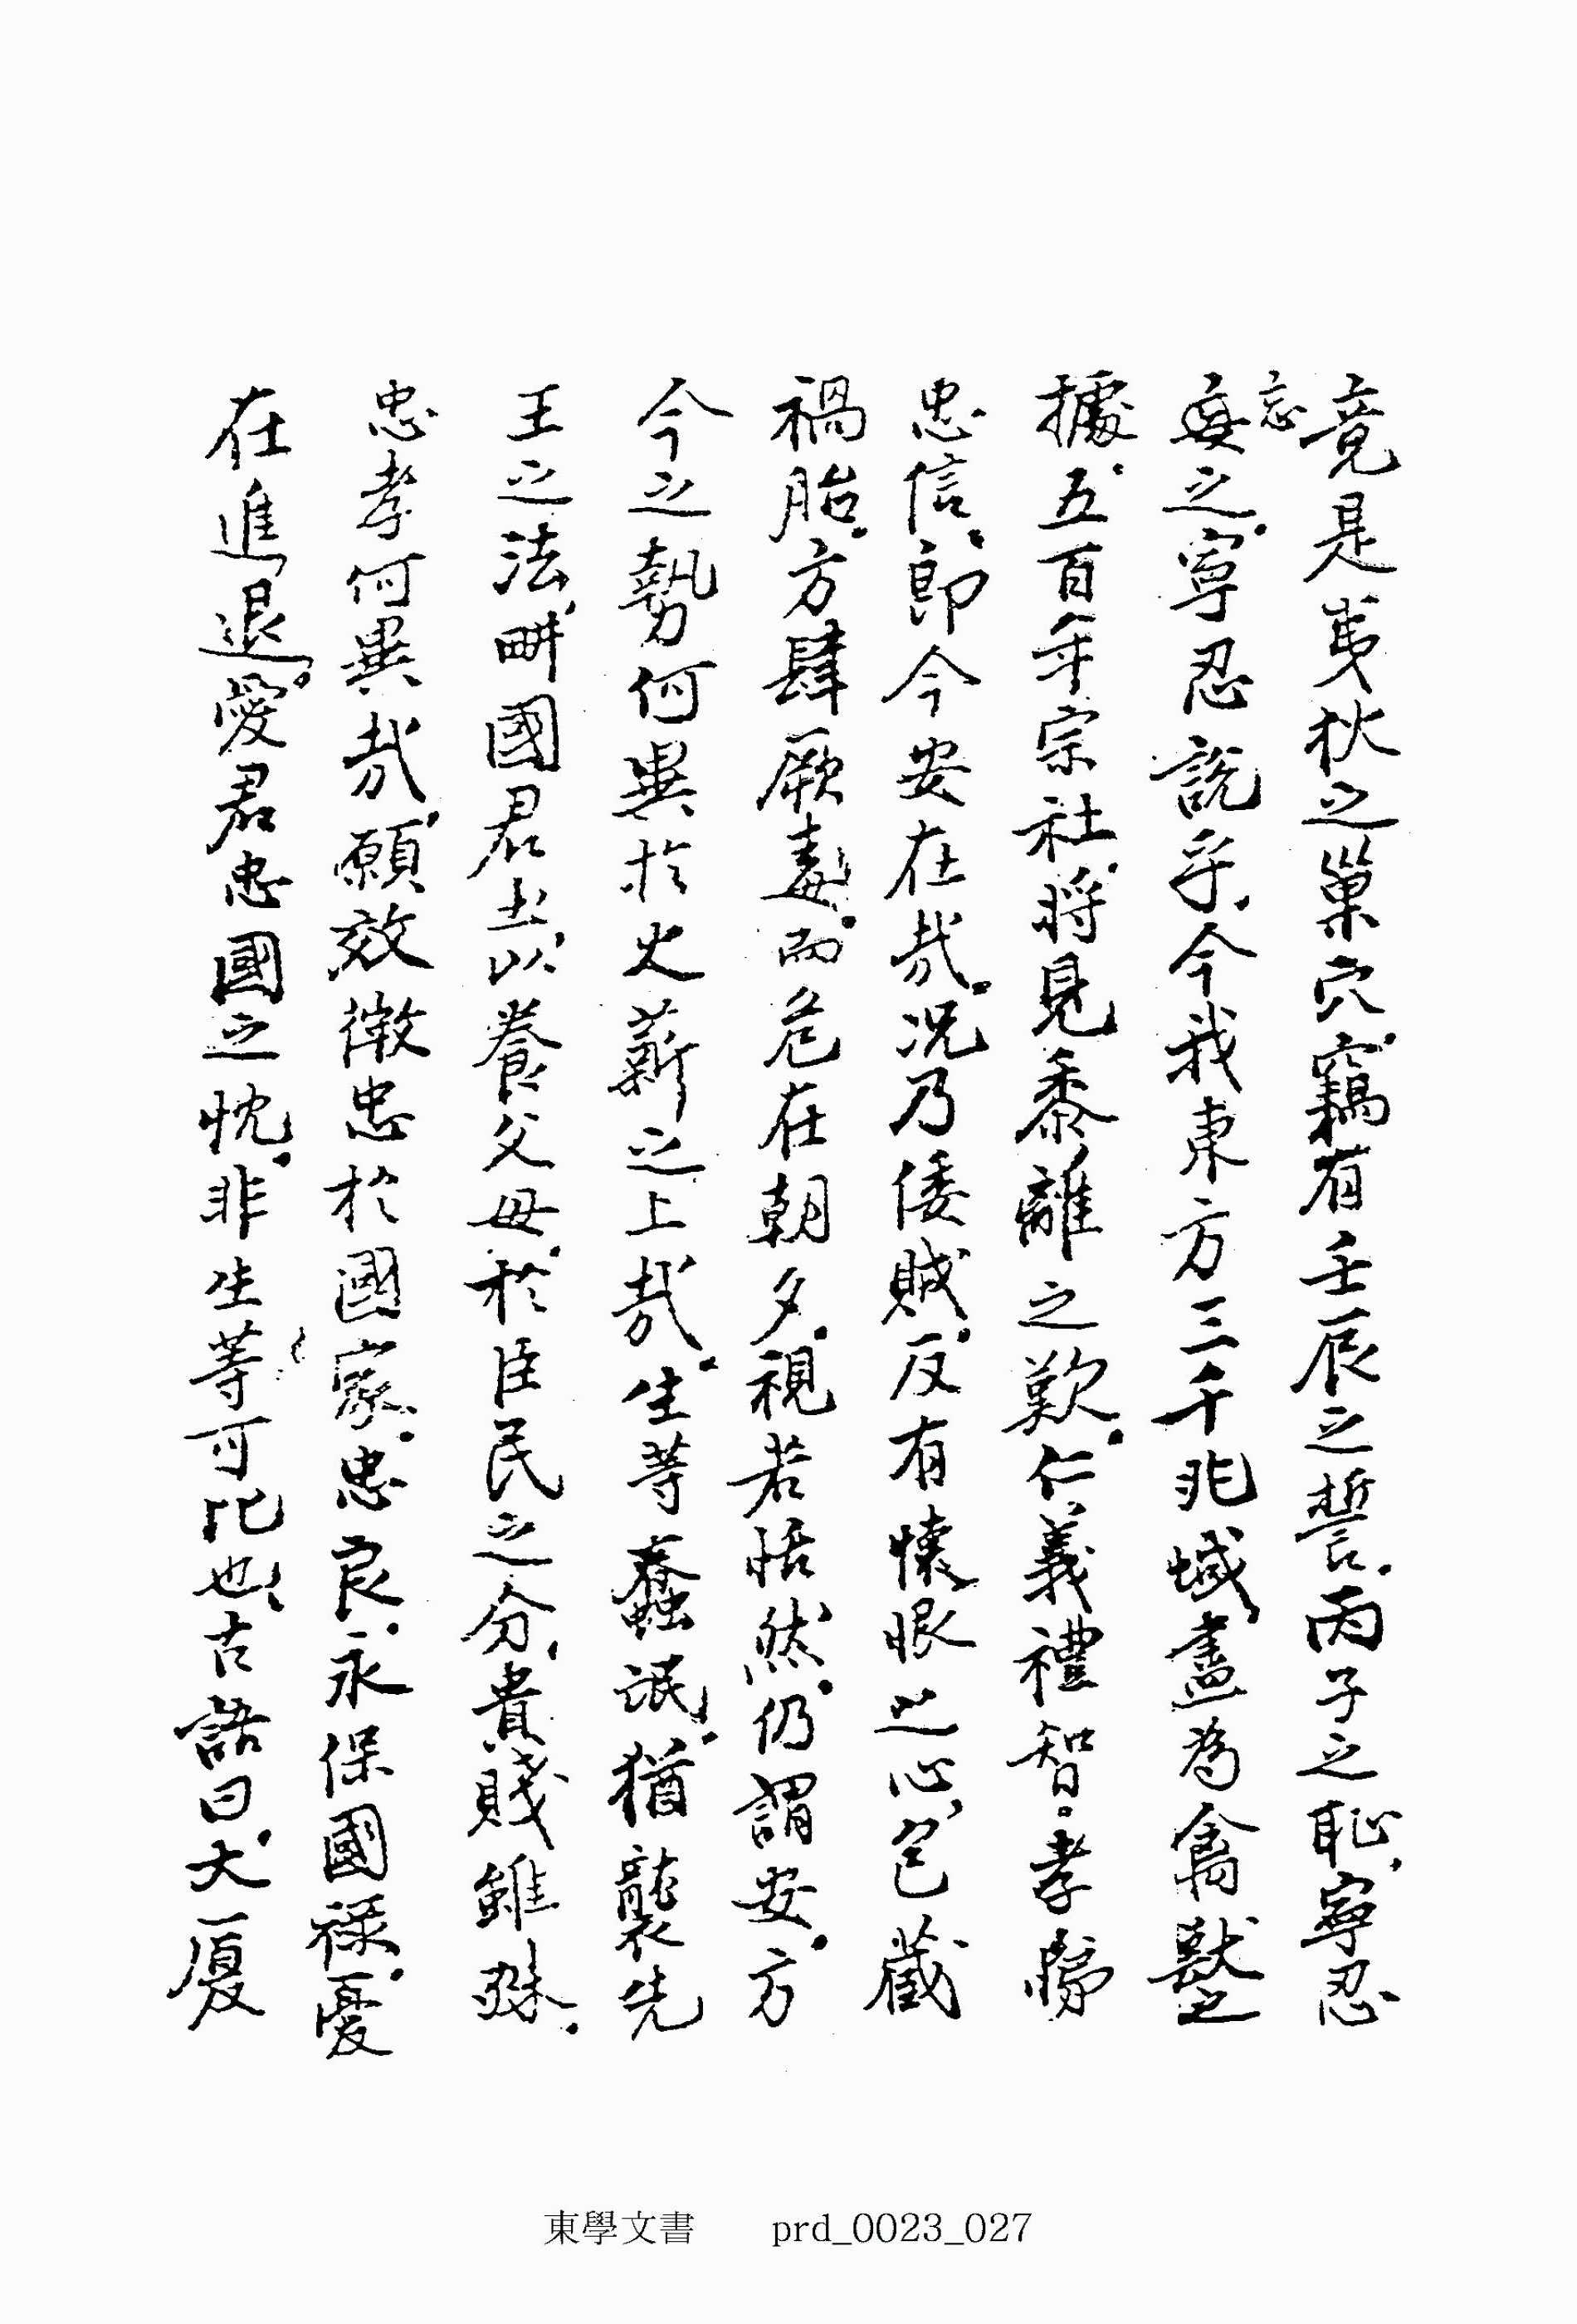 竟是夷狄之巢穴竊有壬辰之誓丙子之恥寧忍
忘
毎之寧忍説乎今我東方三千兆域盡為禽獸之
據五百年宗社將見黍離之歎仁義禮智孝悌
忠信郎今安在哉况乃倭賊反有懐恨之心包藏
禍胎方肆厥毒而危在朝夕視若恬然仍謂安方
今之勢何異於火薪之上哉生等蠢氓猶襲先
王之法畊國君土以養父母於臣民之分貴賤雖殊
忠孝何異哉願效微忠於國家忠良永保國祿憂
在進退愛君忠國之忱非生等可比也古語曰大廈
東學文書 prd_0023_027